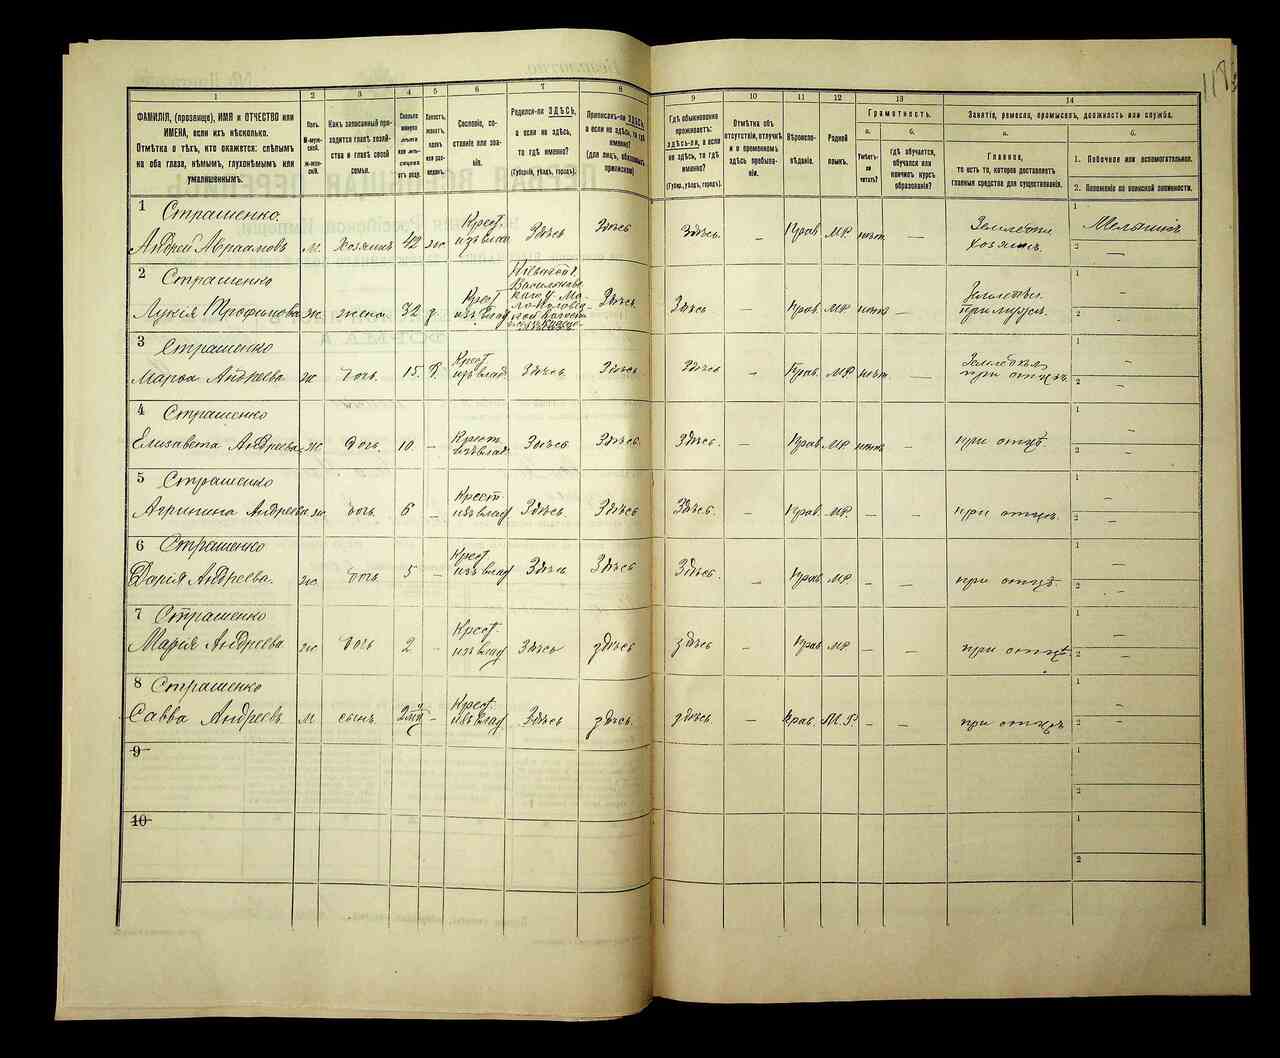 118
1
2
3
4
5
6
7
8
ФАМИЛІЯ, (прозвище), ИМЯ и ОТЧЕСТВО или
ИМЕНА, если ихъ нѣсколько.
Отмѣтка о тѣхъ, кто окажется: слѣпымъ
на оба глаза, нѣмымъ, глухонѣмымъ или
умалишеннымъ.
Полъ.
М-муж-
ской.
ж-жен-
скій.
Какъ записанный при-
ходится главѣ хозяй-
ства и главѣ своей
семьи.
Сколько
минуло
лѣтъ
или мѣ-
сяцевъ
отъ роду.
Холостъ,
женатъ,
вдовъ
или раз-
веденъ.
Сословіе, со-
стояніе или зва-
ніе.
Родился-ли ЗДѢСЬ,
а если не здѣсь,
то гдѣ именно?
(Губернія, уѣздъ, городъ).
Приписанъ-ли ЗДѢСЬ,
а если не здѣсь, то гдѣ
именно?
(для лицъ, обязанныхъ
припискою)
9
10
11
12
13
14
Гдѣ обыкновенно
проживаетъ:
здѣсь-ли, а если
не здѣсь, то гдѣ
именно?
(Губер., уѣздъ, городъ).
Отмѣтка объ
отсутствіи, отлучкѣ
и о временномъ
здѣсь пребыва-
ніи.
Вѣроиспо-
вѣданіе.
Родной
языкъ.
Грамотность.
а.
б.
Умѣетъ-
ли
читать?
гдѣ обучается,
обучался или
кончилъ курсъ
образованія?
Занятіе, ремесло, промыселъ, должность или служба.
а.
б.
Главное,
то есть то, которое доставляетъ
главныя средства для существованія.
1. Побочное или вспомогательное.
2. Положеніе по воинской повинности.
1 Страшенко
Андрей Абраамовъ м. хозяинъ 42 ж. Крест. изъ влад. Здѣсь Здѣсь Здѣсь. – Прав М.Р. нѣт – хозяинъ. 1 Мельникъ 2 –
2 Страшенко
Лукія Трофимова ж. жена 32 з. Крест изъ влад Здѣсь Здѣсь – Прав М.Р. нѣт – при мужѣ. 1 – 2 –
3 Страшенко
Марѳа Андреева ж дочь 15. Крест изъ влад. Здѣсь Здѣсь Здѣсь – Прав. М.Р. нѣт. – при отцѣ. 1 – 2 –
4 Страшенко
Елизавета Андреева ж дочь. 10. – Крест. изъ влад. Здѣсь Здѣсь Здѣсь. – Прав М.Р. нѣт – при отцѣ. 1 – 2 –
5 Страшенко
Агрипина Андреева ж. дочь. 6 – Крест. изъ влад Здѣсь Здѣсь Здѣсь. – Прав. М.Р. – – при отцѣ. 1 – 2 –
6 Страшенко
Дарія Андреева. ж. дочь 5 – Крест изъ влад Здѣсь Здѣсь Здѣсь. – Прав. М.Р. – – при отцѣ. 1 – 2 –
7 Страшенко
Марія Андреева ж дочь 2 – Крест. изъ влад Здѣсь здѣсь здѣсь – Прав М.Р. – – при отцѣ 1 – 2 –
8 Страшенко
Савва Андреевъ м сынъ. – Крест. изъ влад Здѣсь здѣсь. здѣсь – Прав. М.Р. – – при отцѣ 1 – 2 –
9
1
2
10
1
2